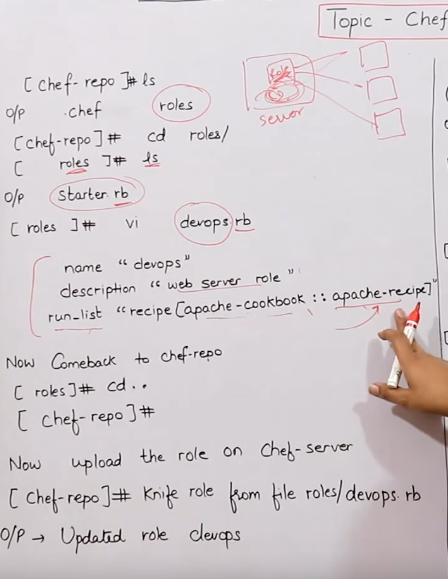 Topic - Chef
[chef-repo]# ls
O/P .chef roles
role
server
[chef-repo]# cd roles/
[ roles ]# ls
O/P starter.rb
[ roles ]# vi devops.rb
name "devops"
description "web server role"
run_list "recipe[apache-cookbook :: apache-recipe]"
Now Comeback to chef-repo
[ roles]# cd..
[ chef-repo]#
Now upload the role on Chef-server
[chef-repo]# Knife role from file roles/devops.rb
O/P → Updated role devops